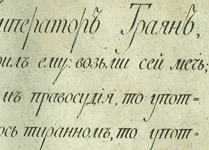 Императоръ Траянъ,
рилъ ему: возьми сей мечь;
мъ правосудія, то упот-
юсь тиранномъ, то упот-